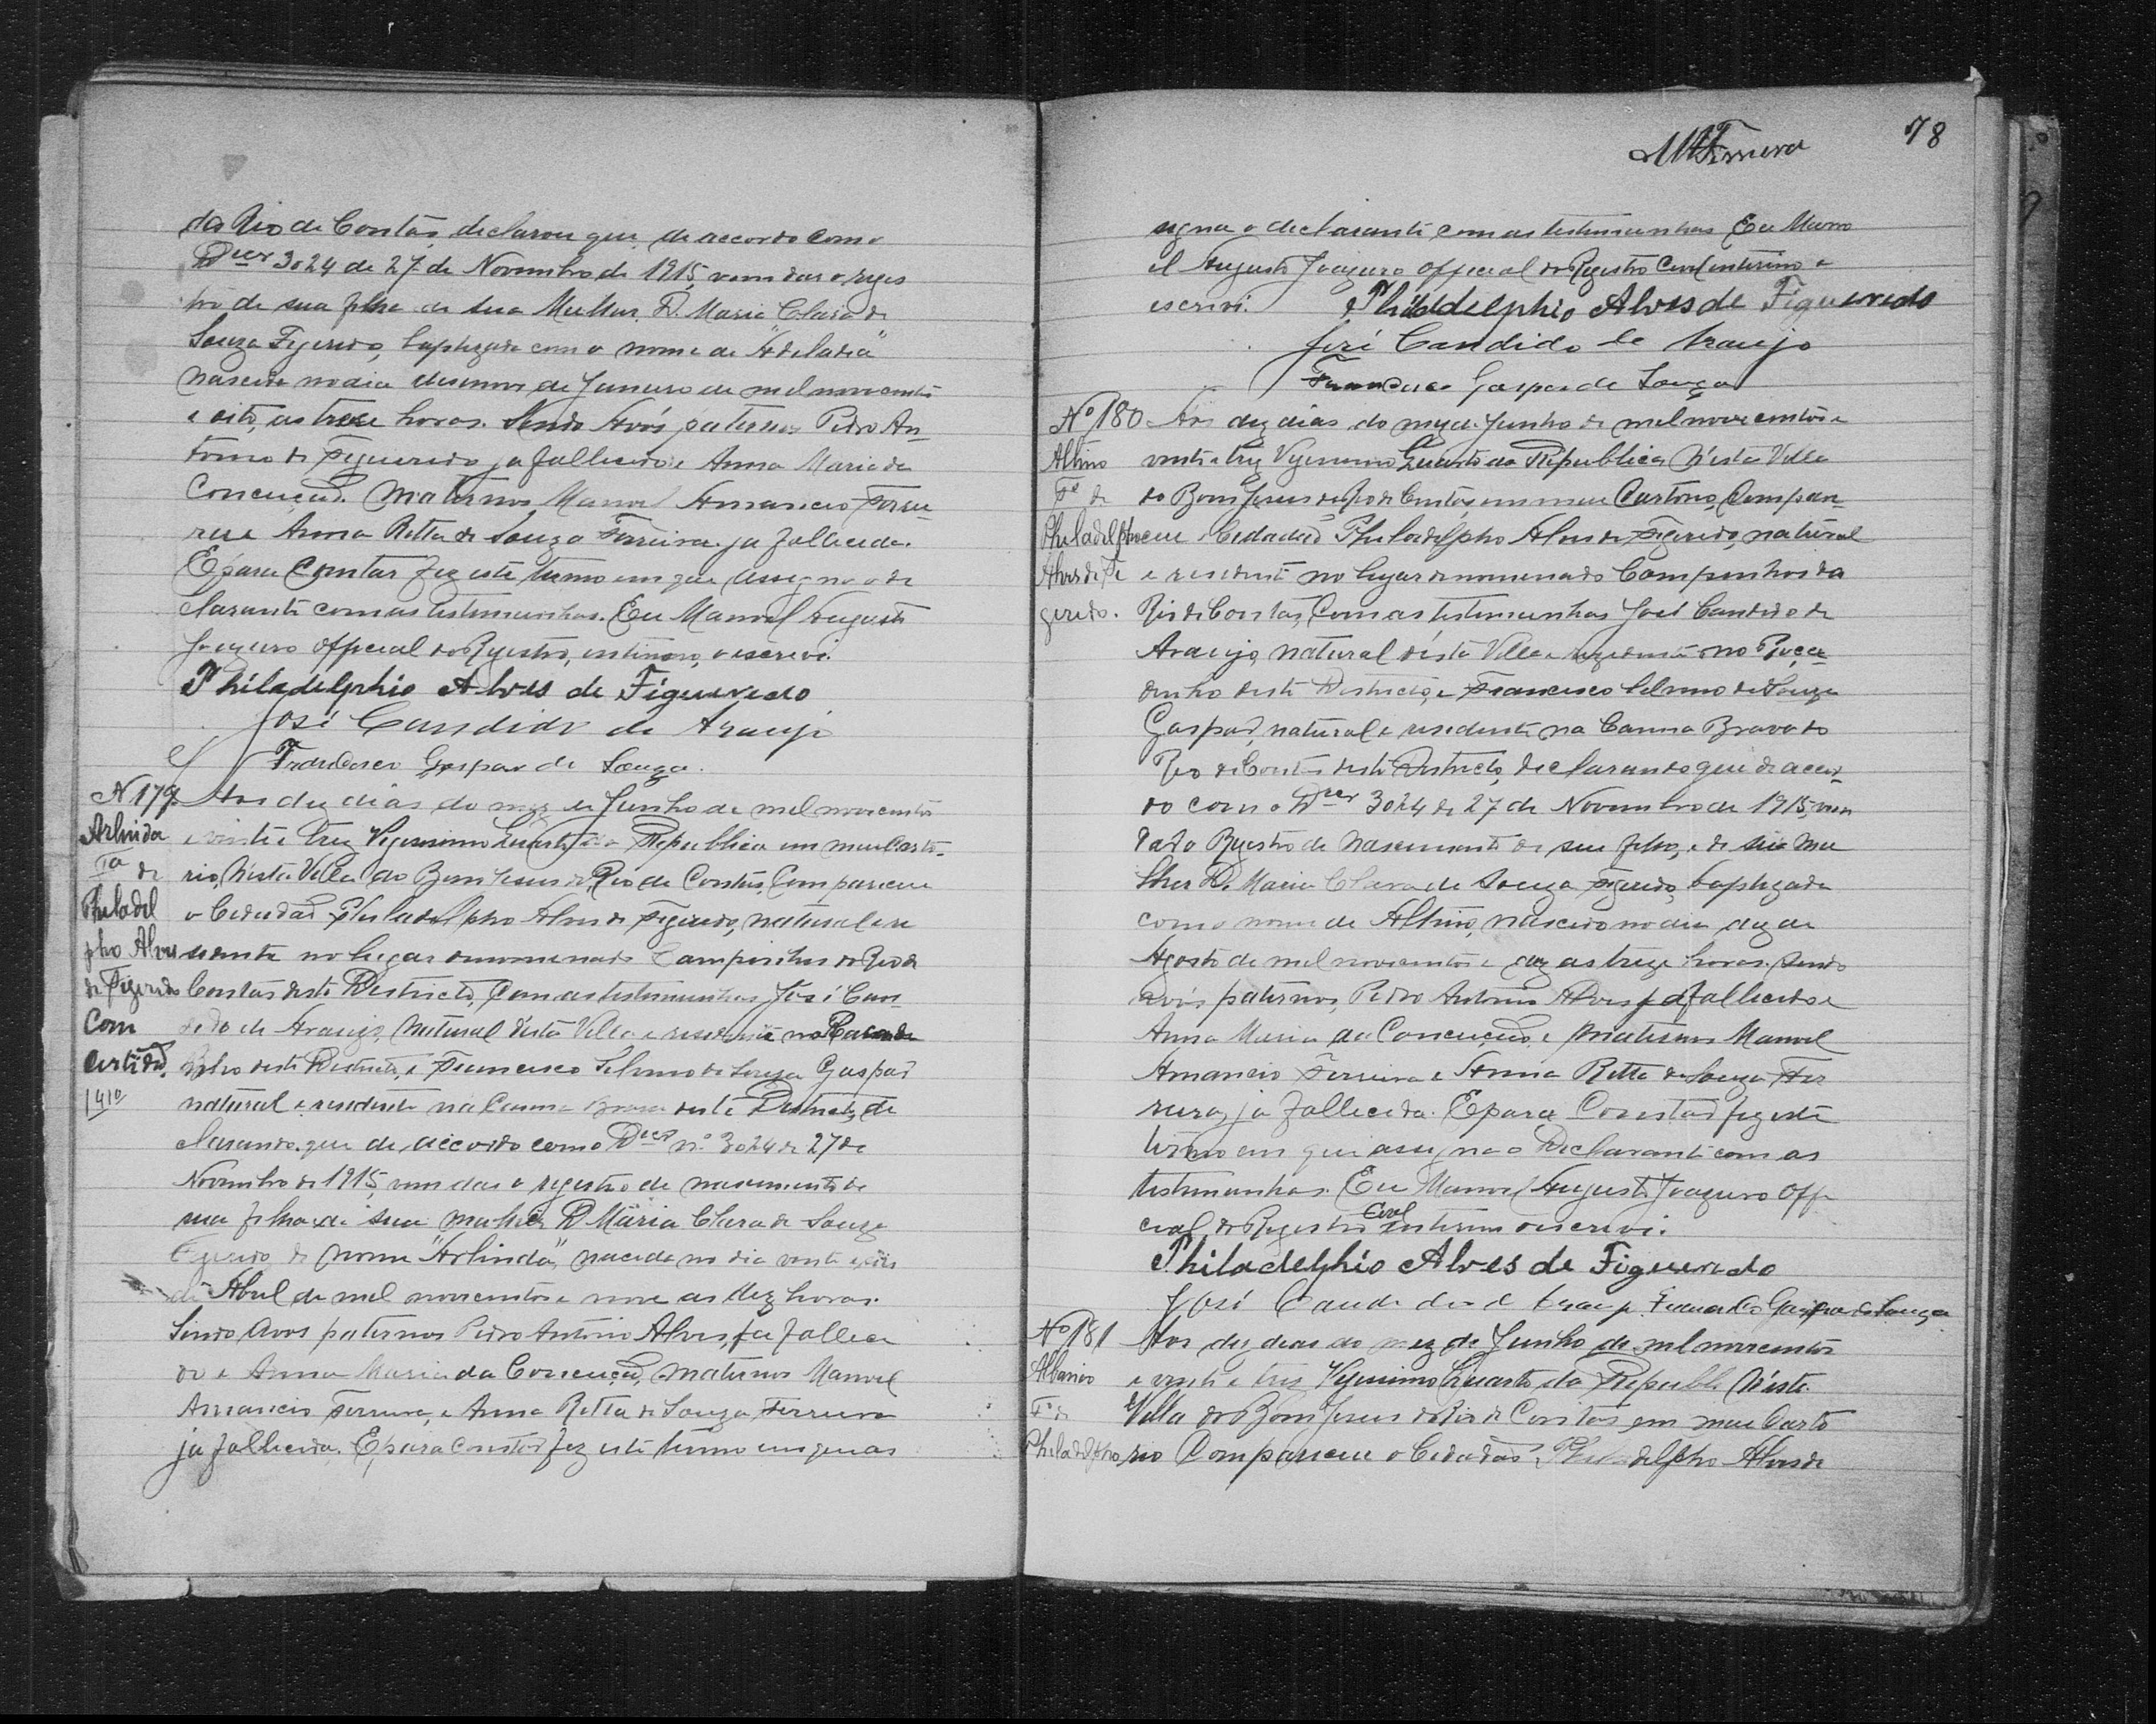 do Rio de Contas, declarou que de accordo com o
Decr 3024 de 27 de Novembro de 1915, vem dar o regis
tro de sua filha de sua Mulher D. Maria Clara de
Souza Figeredo, baptizada com o nome de "Adeladia"
nascida no dia desenove de Janeiro de mil novecentos
e oito, as treze horas. Sendo Avós paternos Pedro An-
tonio de Figueredo ja fallecido e Anna Maria da
Conceição. Maternos Manoel Amancio Ferrei-
ra e Anna Ritta de Souza Ferreira ja fallecida.
E para Constar fiz este termo em que assigna o de
clarante com as testimunhas. Eu Manoel Augusto
Joazeiro Official do Registro, interino, o escrevi.
Philadelphio Alves de Figueredo
José Candido de Araujo
Francisco Gaspar de Souza
N 179 Aos dez dias do mez de Junho de mil novecentos
Arlinda e vinte e trez Vigessimo Quarto da Republica em meu Carto-
Fa de rio, N'esta Villa do Bom Jesus do Rio de Contas, Compareceu
Philadel o Cidadão Philadelpho Alves de Figeredo, natural e re
pho Alves sidente no lugar denomenado Campinhos do Rio de
de Figeredo Contas deste Destricto, Com as testimunhas José Can
Com dido de Araujo, Natural d'esta Villa e residente no
Certidão. deste Destricto, e Francisco Selvino de Souza Gaspar
1410 natural e residente na Canna Brava deste Destricto, de
clarando que de accordo com o Decr nº 3024 de 27 de
Novembro de 1915, vem dar o registro de nascimento de
sua filha e de sua mulher D Maria Clara de Souza
Figeredo de nome "Arlinda", nacida no dia vinte e
de Abril de mil novecentos e nove as dez horas.
Sendo avos paternos Pedro Antonio Alves, ja falleci
do e Anna Maria da Conceição, maternos Manoel
Amancio Ferreira, e Anna Ritta de Souza Ferreira
ja fallecida. E para Constar fez este termo em que as
78
signa o declarante com as testimunhas Eu Mano
el Augusto Joazeiro Official do Registro Civil interino o
escrivi. Philadelphio Alves de Figueredo
José Candido de Araujo
Francisco Gaspar de Souza
Nº 180 Aos dez dias do mez de Junho de mil novecentos e
Altino vinte e trez Vigessimo Quarto da Republica, N'esta Villa
Fº de do Bom Jesus do Rio de Contas, em meu Cartorio, Compare-
Philadelpho ceu o Cidadão Philadelpho Alves de Figeredo, natural
Alves de Fi e residente no lugar denomenado Campinhos do
geredo. Rio de Contas, Com as testimunhas José Candido de
Araujo, natural d'esta Villa e rezidente no
dinho deste Destricto, e Francisco Selvino de Souza
Gaspar, natural e residente na Canna Brava do
Rio de Contas deste Destricto, declarando que de accor-
do com o Decr 3024 de 27 de Novembro de 1915, vem
da o Registro de Nascimento de seu filho, e de sua Mu
lher D. Maria Clara de Souza Figeredo, baptizado
com o nome de Altino, nascido no dia dez de
Agosto de mil novecentos e dez as treze horas. Sendo
avós paternos, Pedro Antonio Alves ja fallecido e
Anna Maria da Conceição, e maternos Manoel
Amancio Ferreira e Anna Ritta de Souza Fer
reira, ja fallecida. E para Constar fiz este
termo em que assigna o Declarante com as
testimunhas. Eu Manoel Augusto Joazeiro Offi
cial do Registro Civil interino o escrevi.
Philadelphio Alves de Figueredo
José Candido de Araujo Francisco Gaspar de Souza
Nº 181 Aos dez dias do mez de Junho de mil novecentos
Albanio e vinte e trez Vigessimo Quarto da Republ N'esta
Fº de Villa do Bom Jesus do Rio de Contas em meu Carto
Philadelpho rio Compareceu o Cidadão Philadelpho Alves de